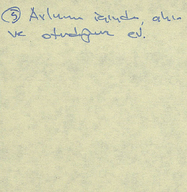 ⑨ Avlunun içinde, ahır
ve oturduğum ev.